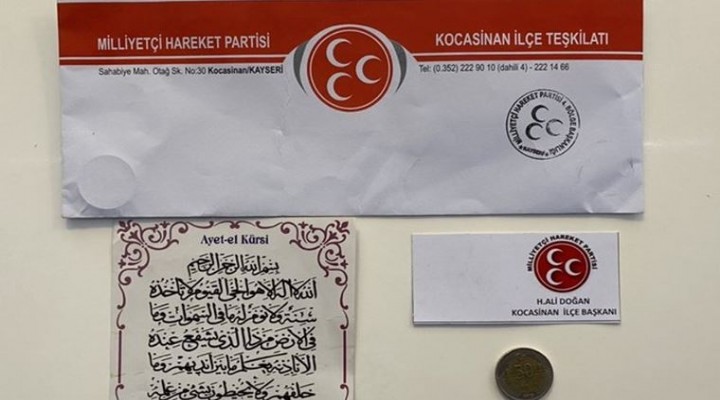 MİLLİYETÇİ HAREKET PARTİSİ
KOCASİNAN İLÇE TEŞKİLATI
Sahabiye Mah. Otağ Sk. No:30 Kocasinan/KAYSERİ
Tel: (0.352) 222 90 10 (dahili 4) - 222 14 66
MİLLİYETÇİ HAREKET PARTİSİ 4. BÖLGE BAŞKANLIĞI
KAYSERİ
Ayet-el Kürsi
بسم الله الرحمن الرحيم
الله لا اله الا هو الحي القيوم لا تأخذه
سنة ولا نوم له ما في السموات وما
في الارض من ذا الذي يشفع عنده
الا باذنه يعلم ما بين ايديهم وما
خلفهم ولا يحيطون بشيء من علمه
MİLLİYETÇİ HAREKET PARTİSİ
H.ALİ DOĞAN
KOCASİNAN İLÇE BAŞKANI